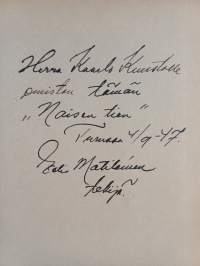 Herra Kaarlo Kunstalle
omistan tämän
„Naisen tien”
Turussa 4/9-47.
Matilainen
tekijä.